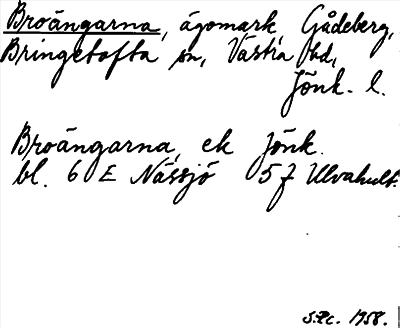 Broängarna, ägomark Gådeberg,
Bringetofta sn, Västra hd,
Jönk. l.
Broängarna, ek Jönk.
bl. 6 E Nässjö 5 f Ulvahult.
1958.